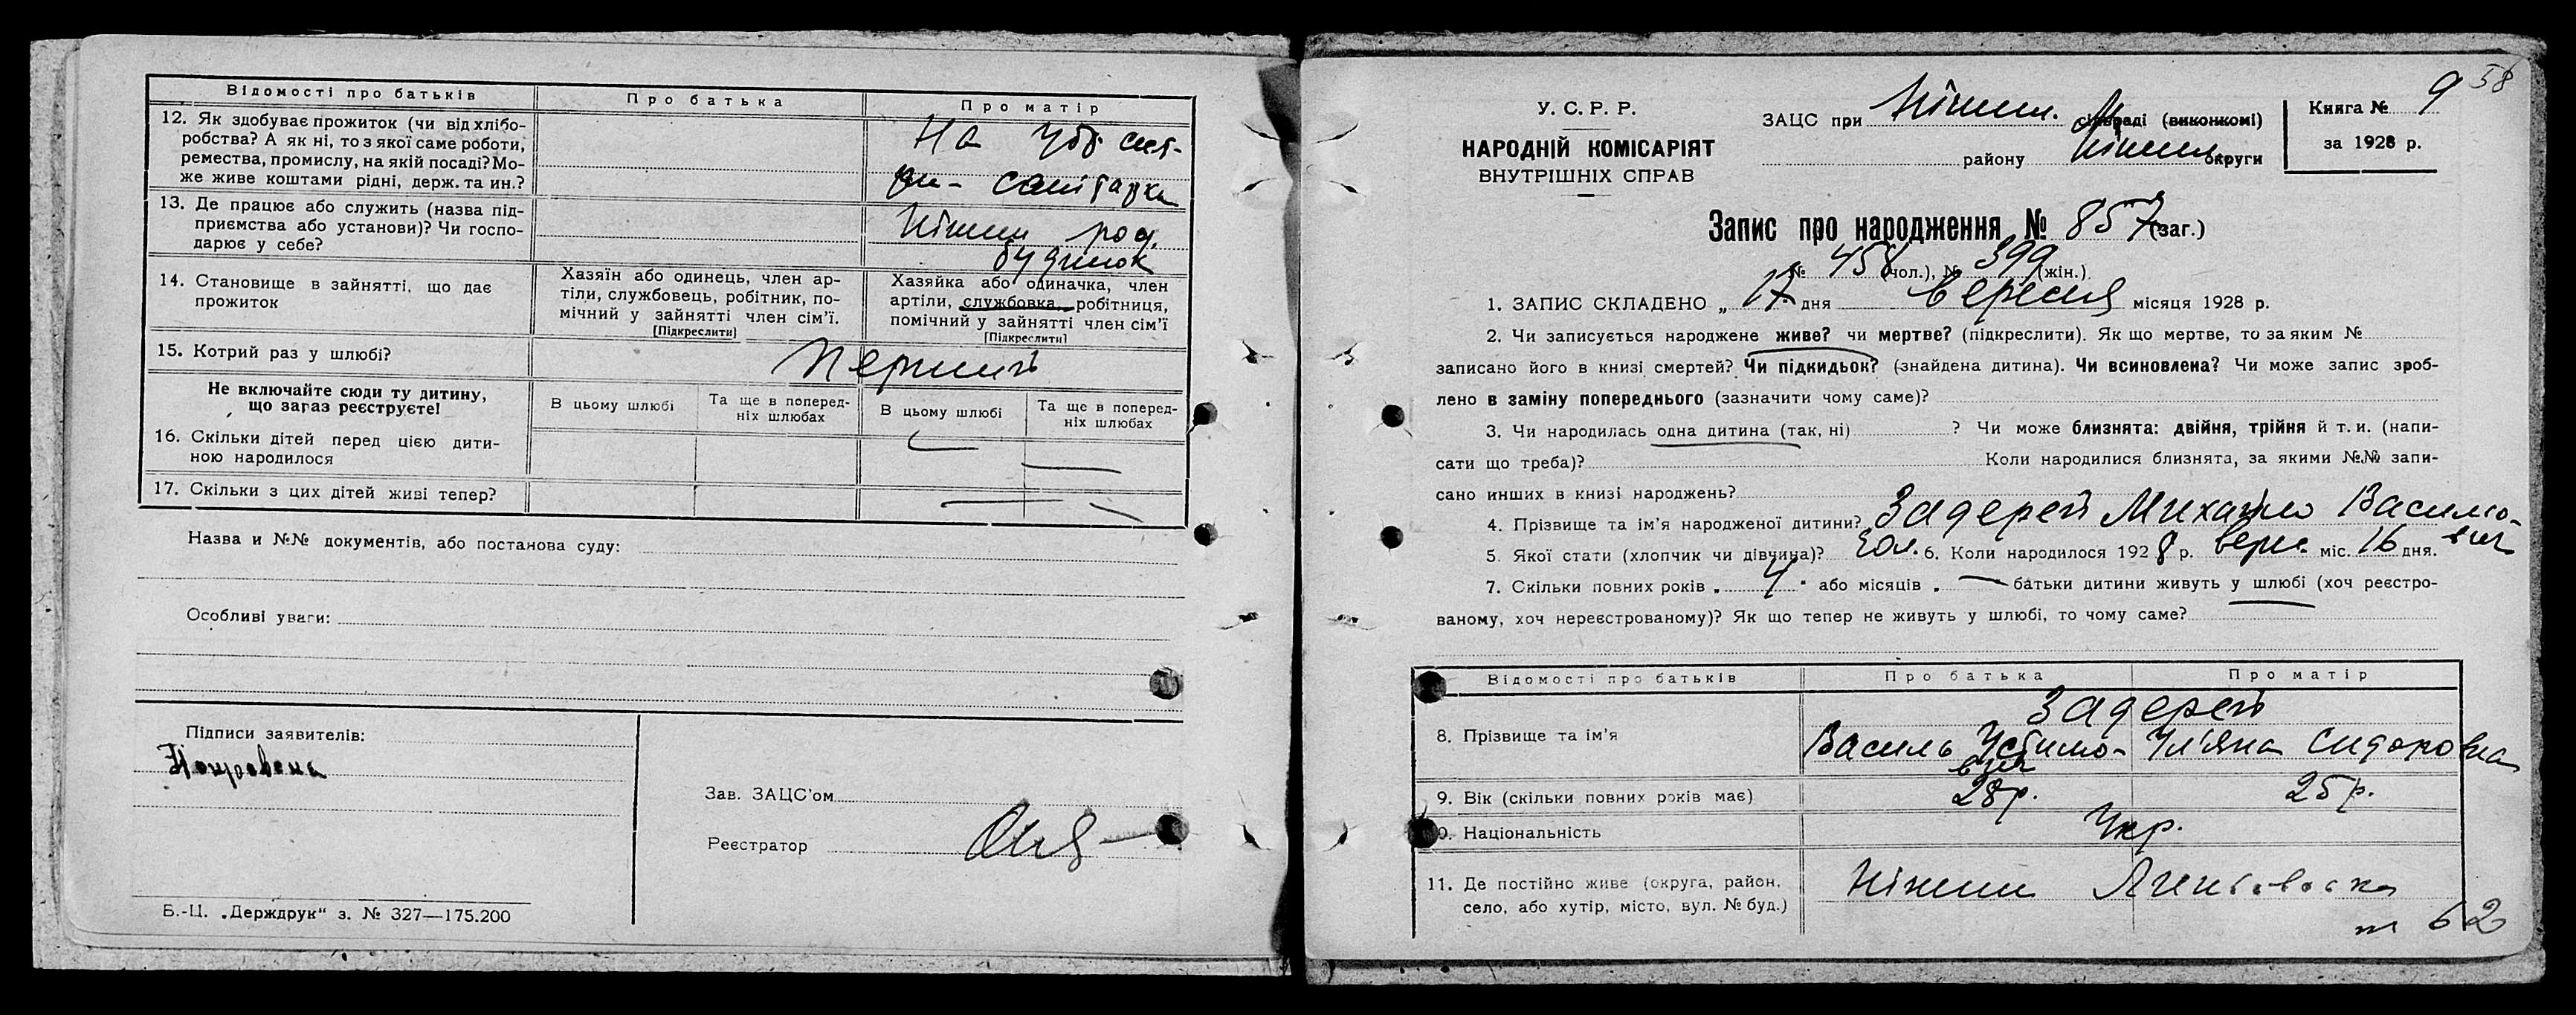 Відомості про батьків
Про батька
Про матір
12. Як здобуває прожиток (чи від хлібо-
робства? А як ні, то з якої саме роботи,
ремества, промислу, на якій посаді? Мо-
же живе коштами рідні, держ. та ин.?
На
санітарка
13. Де працює або служить (назва під-
приємства або установи)? Чи госпо-
дарює у себе?
Ніжин род.
будинок
14. Становище в зайнятті, що дає
прожиток
Хазяїн або одинець, член ар-
тіли, службовець, робітник, по-
мічний у зайнятті член сім'ї.
[Підкреслити]
Хазяйка або одиначка, член
артіли, службовка, робітниця,
помічний у зайнятті член сім'ї
[Підкреслити]
15. Котрий раз у шлюбі?
Перший
Не включайте сюди ту дитину,
що загаз реєструєте!
В цьому шлюбі
Та ще в поперед-
ніх шлюбах
В цьому шлюбі
Та ще в поперед-
ніх шлюбах
16. Скільки дітей перед цією дити-
ною народилося
17. Скільки з цих дітей живі тепер?
Назва и №№ документів, або постанова суду:
Особливі уваги:
Підписи заявителів:
Зав. ЗАЦС'ом
Реєстратор
Б.-Ц. „Держдрук“ з. № 327—175.200
58
У. С. Р. Р.
НАРОДНІЙ КОМІСАРІЯТ
ВНУТРІШНІХ СПРАВ
ЗАЦС при Ніжин. сільраді (виконкомі)
району Ніжин округи
Книга № 9
за 1928 р.
Запис про народження № 857 (заг.)
№ 458 (чол.), № 399 (жін.)
1. ЗАПИС СКЛАДЕНО „ 17 дня вересня місяця 1928 р.
2. Чи записується народжене живе? чи мертве? (підкреслити). Як що мертве, то за яким №
записано його в книзі смертей? Чи підкидьок? (знайдена дитина). Чи всиновлена? Чи може запис зроб-
лено в заміну попереднього (зазначити чому саме)?
3. Чи народилась одна дитина (так, ні) ? Чи може близнята: двійня, трійня й т. и. (напи-
сати що треба)? Коли народилися близнята, за якими №№ запи-
сано инших в книзі народжень?
4. Прізвище та ім'я народженої дитини? Задерей Михайло Василю-
вич
5. Якої стати (хлопчик чи дівчина)? чол. 6. Коли народилося 1928 р. верес. міс. 16 дня.
7. Скільки повних років „ 4 “ або місяців „ — батьки дитини живуть у шлюбі (хоч реєстро-
ваному, хоч нереєстрованому)? Як що тепер не живуть у шлюбі, то чому саме?
Відомості про батьків
Про батька
Про матір
8. Прізвище та ім'я
Задерей
Василь Устимо-
вич
Ул'яна Сидоровна
9. Вік (скільки повних років має)
28 р.
25 р.
10. Національність
Укр.
11. Де постійно живе (округа, район,
село, або хутір, місто, вул. № буд.)
Ніжин
62